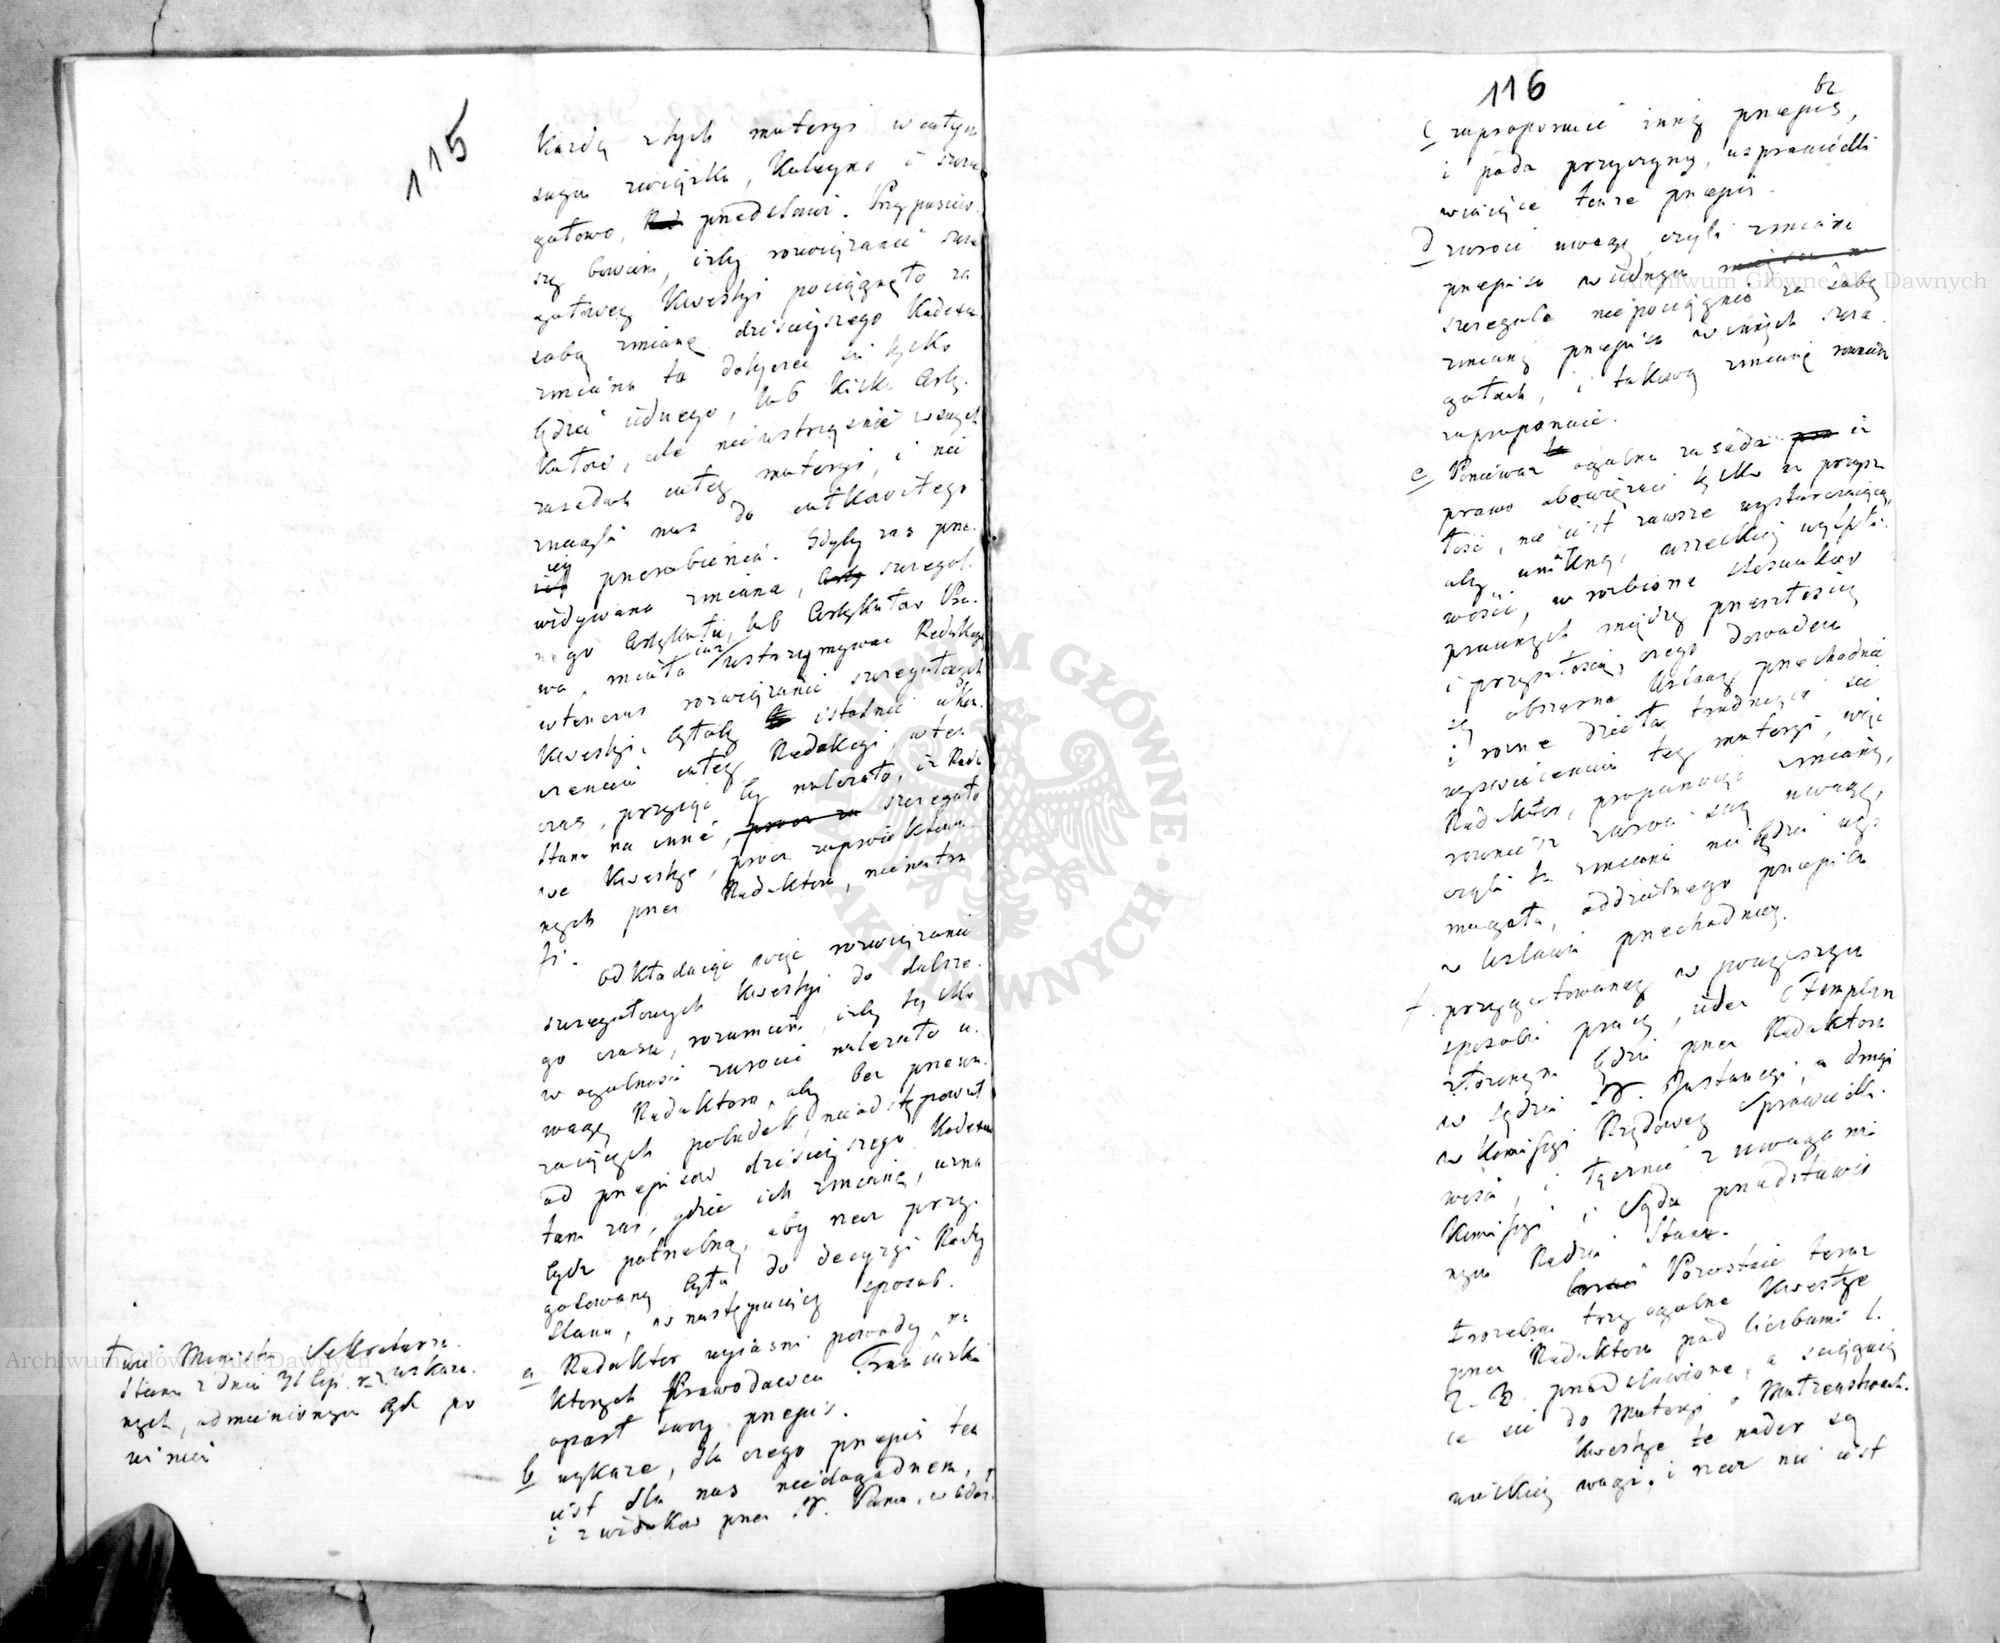 115
Każdą z tych materyi w całym
swym związku, kolejno i szcze
gółowo, przedstawi. Przypuścić
się bowiem, iżby rozwiązanie szcze
gółowey kwestyi pociągnęło za
sobą zmianę dzisiejszego Kodexu
zmiana ta dotyczeć się tylko
będzie jednego, lub kilku Arty-
kułów, ale niewstrząśnie w swych
zasadach całej materyi, i nie
znagli nas do całkowitego
jej przerobienia. Gdyby zaś prze-
widywana zmiana, szczegól-
nego Artykułu, lub Artykułów Pra-
wa, miała już wstrzymywać Redakcyą
wtenczas rozwiązanie szczegółowych
kwestyi, byłoby istotnie ukoń-
czeniem całej Redakcyi, wten-
czas, przyjąć by należało, iż Rada
Stanu na inne, szczegóło
we kwestye, przez zaprojektowa-
nych przez Redaktora, nie natra
fi.
Odkładając więc rozwiązanie
szczegółowych kwestyi do dalsze-
go czasu, rozumiem, iżby tylko
w ogólności zwrócić należało u-
wagę Redaktora, aby bez przewa-
żających pobudek, nieodstępował
od przepisów dzisiejszego Kodexu
tam zaś, gdzie ich zmianę, uzna
być potrzebną, aby rzecz przy-
gotowaną była do decyzyi Rady
Stanu, w następujący sposób.
a Redaktor wyjaśni powody, na
których Prawodawca Francuzki
oparł swój przepis.
b wykaże, dla czego przepis ten
jest dla nas niedogodnym,
i z widoków przez W. Pana,
Ministra Sekretarza
Stanu z dnia 31 lipi. r. z. wskaza-
nych, odmienionym być po
winien
116
62
c zaproponuie inny przepis,
i poda przyczyny, usprawiedli
wiające tenże przepis.
d zwróci uwagę, czyli zmiana
przepisu w jednym
szczególe niepociągnie za sobą
zmiany przepisu w innych szcze
gółach, i takową zmianę również
zaproponuie.
e Ponieważ ogólna zasada iż
prawo obowiązuie tylko na przysz
łość, nie jest zawsze wystarczającą,
aby uniknąć wszelkiej wątpli-
wości, w rozbiorze stosunków
prawnych między przeszłością
i przyszłością, czego dowodem
są obszerne Ustawy przechodnie
i rozne dzieła trudniące się
wyświeceniem tej materyi, więc
Redaktor, proponując zmianę,
rownież zwroci swą uwagę,
czyli ta zmiana nie będzie wy-
magała, oddzielnego przepisu
w Ustawie przechodniej.
f. przygotowanej w powyższym
sposobie pracy, jeden Exemplarz
złożonym będzie przez Redaktora
w Sądzie W. Instancyi, a drugi
w Kommissyi Rządowej Sprawiedli-
wości, i łącznie z uwagami
Kommissyi i Sądu przedstawio
nym Radzie Stanu.
Pozostaie teraz
trzy ogólne kwestye
przez Redaktora pod liczbami 1.
2. 3. przedstawione, a ściągają
ce się do Materyi o Małżeństwach.
Kwestye te nader są
wielkiej wagi, i rzecz nie jest